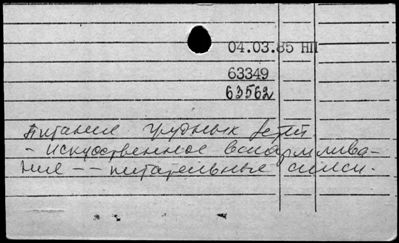 04.03.85 НП
63349
63562
Питание грудных детей
- искусственное вскармлива-
ние -- питательные смеси.